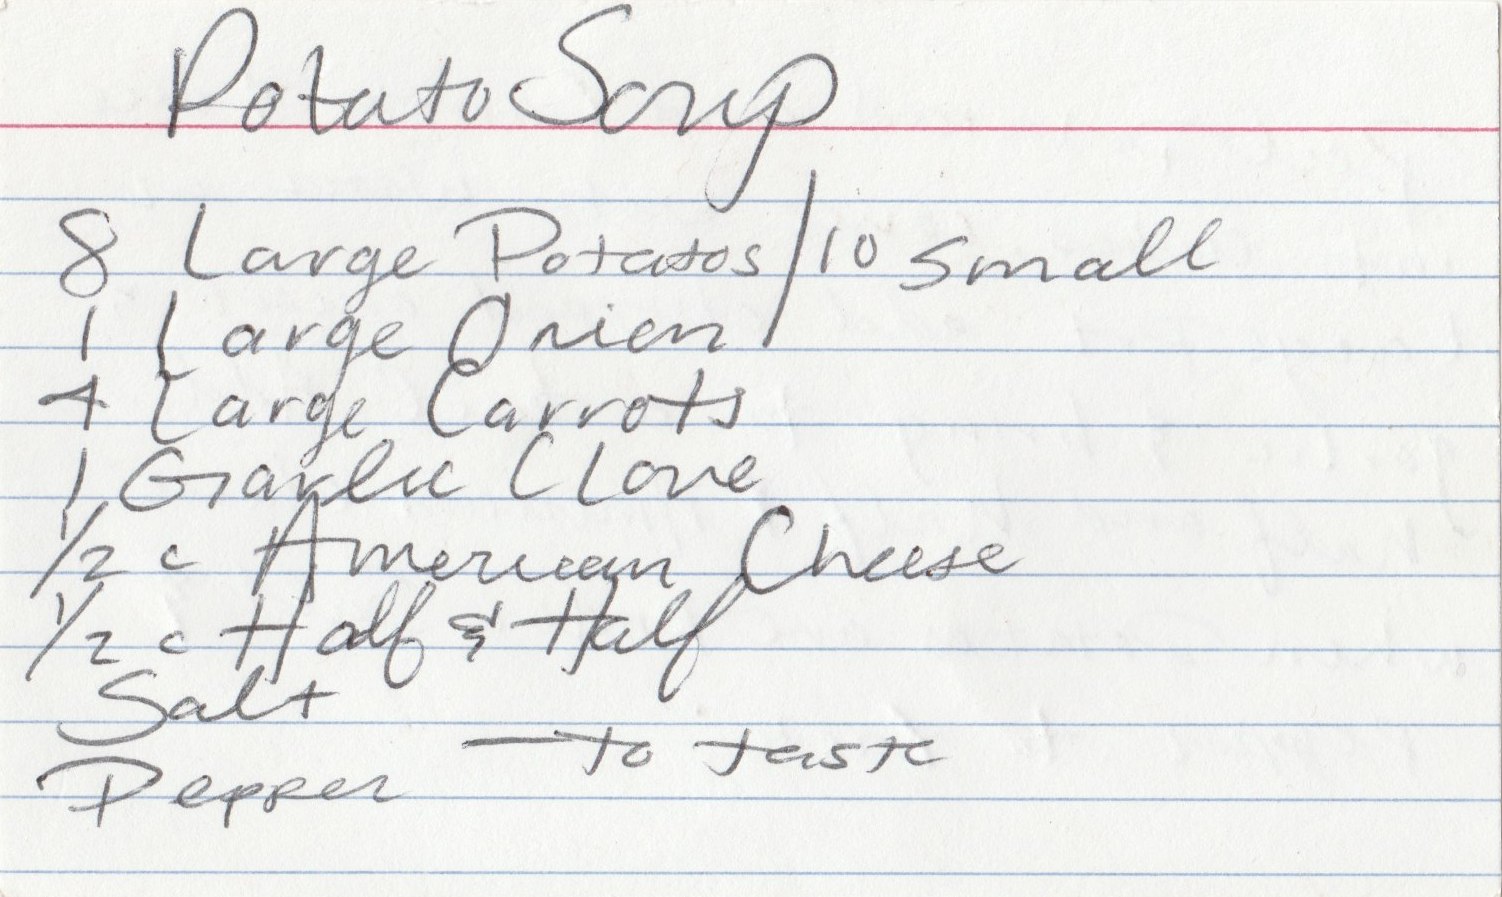 Potato Soup
8 Large Potatos / 10 small
1 Large Onion
4 Large Carrots
1 Garlic Clove
1/2 c American Cheese
1/2 c Half & Half
Salt
— to taste
Pepper